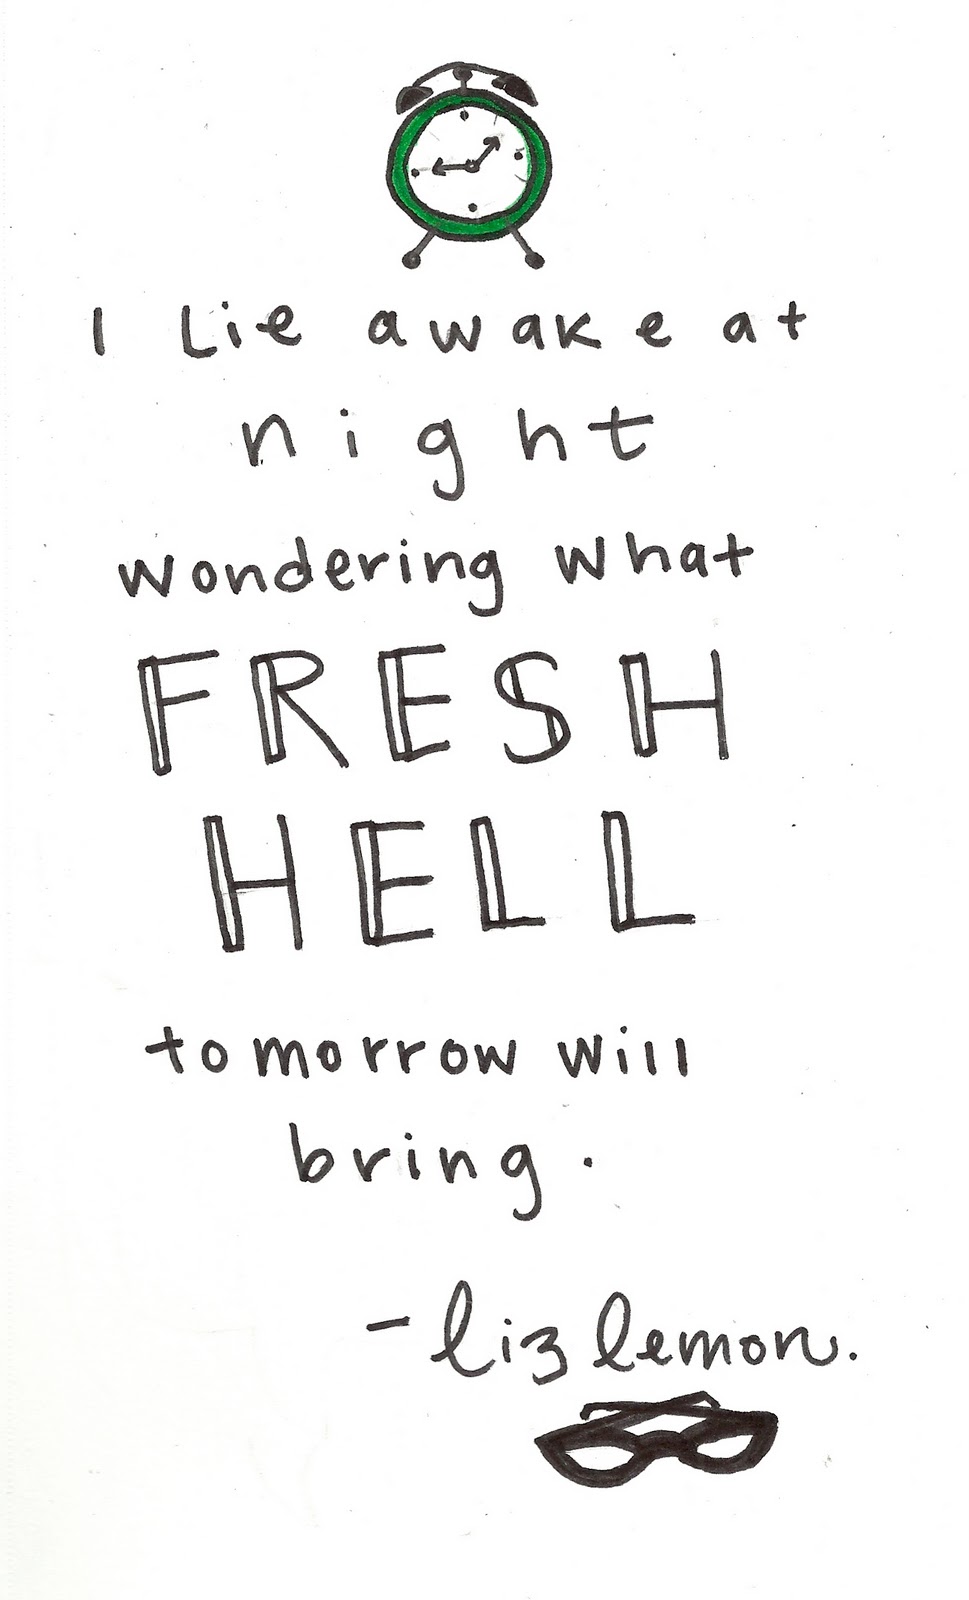 I Lie awake at
night
wondering what
FRESH
HELL
tomorrow will
bring.
- liz lemon.